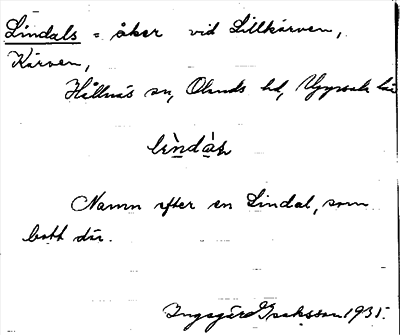 Lindals = åker vid Lillkärven,
Kärven,
Hållnäs sn, Olands hd, Uppsala län
lìndàs
Namn efter en Lindal, som
bott där.
Ingegärd Isaksson 1935.